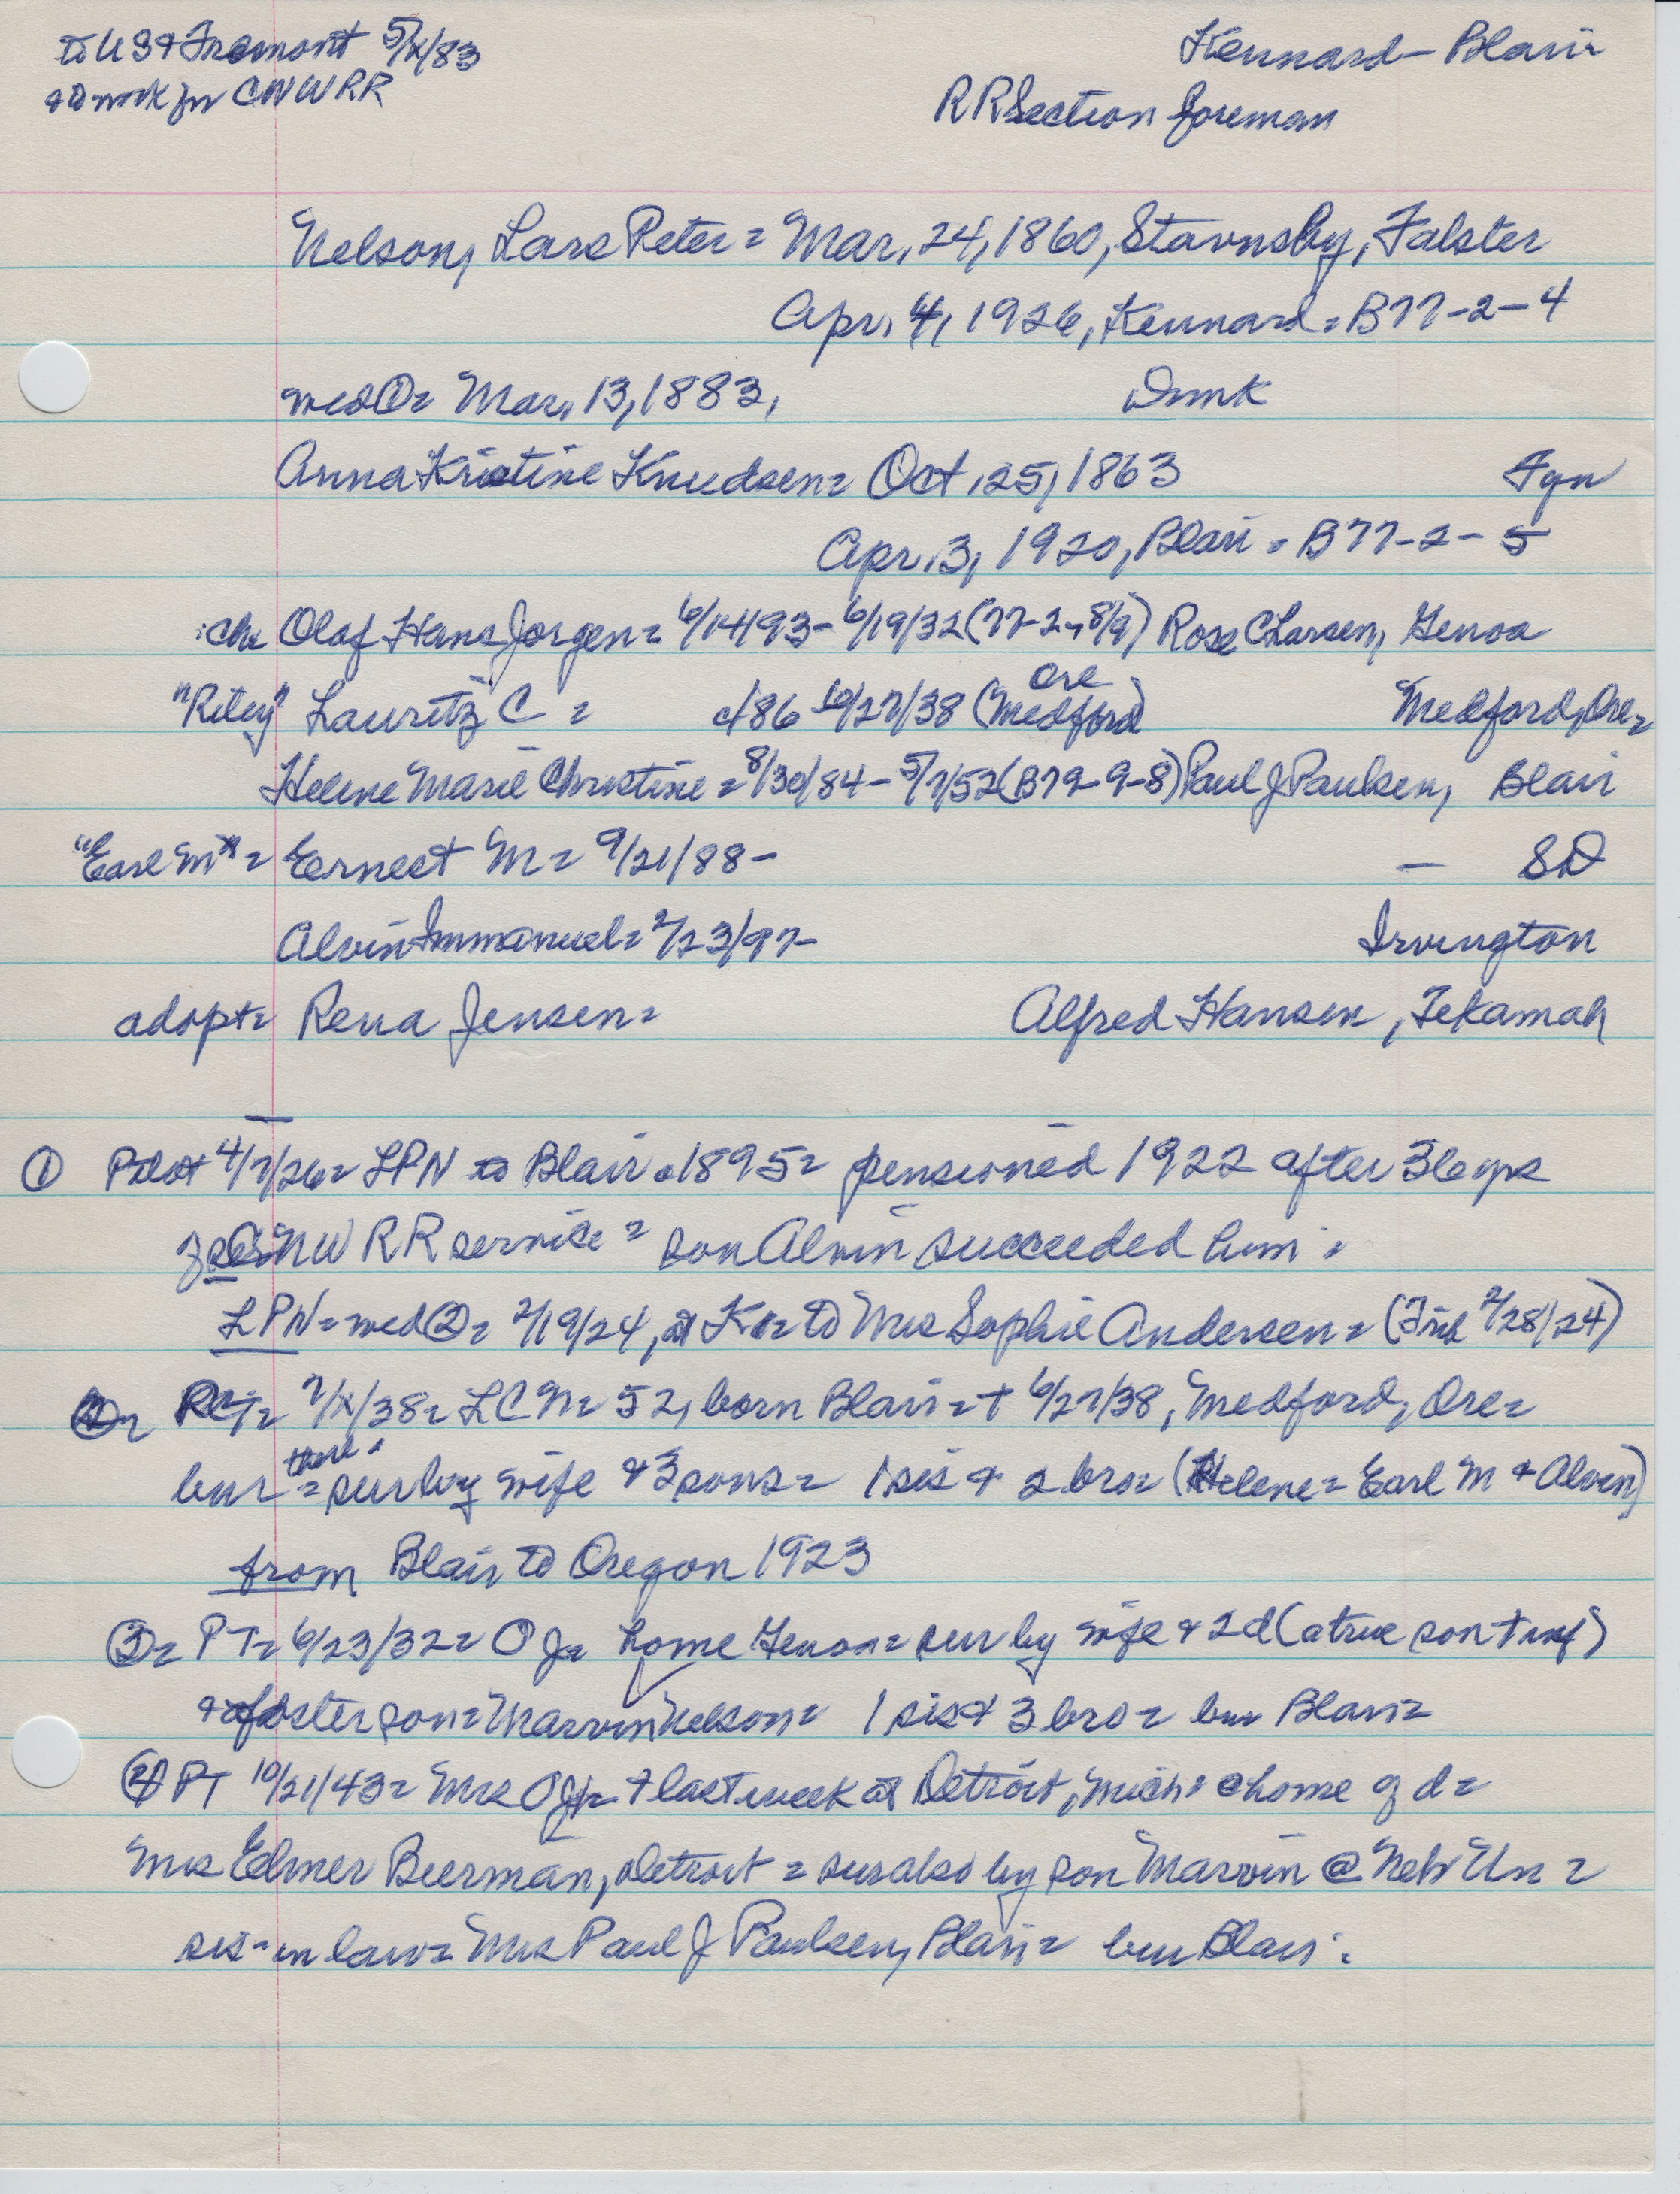 to US & Fremont 5/x/83
& to work for CNWRR
Kennard - Blair
RR Section foreman
Nelson, Lars Peter = Mar, 24, 1860, Stavnsby, Falster
Apr, 4, 1926, Kennard = B77-2-4
wed ① = Mar, 13, 1883, Dmk
Anna Kristine Knudsen = Oct, 25, 1863 Fyn
Apr. 3, 1920, Blair = B77-2-5
ch = Olaf Hans Jorgen = 6/14/93 - 6/19/32 (77-2-8/9) Rose C Larsen, Genoa
"Riley" Lauritz C = c/86 6/27/38 (Medford Ore) Medford, Ore =
Helene Marie Christine = 8/30/84 - 5/7/52 (B79-9-8) Paul J Paulsen, Blair
"Earl M" = Ernest M = 9/21/88 - - SD
Alvin Immanuel = 2/23/97 - Irvington
adopt = Rena Jensen = Alfred Hansen, Tekamah
① Pilot 4/7/26 = LPN to Blair c1895 = pensioned 1922 after 36 yrs
of NW RR service = son Alvin succeeded him =
LPN = wed ② = 2/19/24, at K = to Mrs Sophie Andersen = (Trib 2/28/24)
② = PT = 7/x/38 = LCN = 52, born Blair = + 6/27/38, Medford, Ore =
bur there = sur by wife & 3 sons = 1 sis & 2 bro = (Helene = Earl M & Alvin)
from Blair to Oregon 1923
③ = PT = 6/23/32 = OJ = home Genoa = sur by wife & 2d (a true son + inf)
& foster son = Marvin Nelson = 1 sis & 3 bro = bur Blair =
④ PT 10/21/43 = Mrs OJN = + last week at Detroit, Mich = @ home of d =
Mrs Elmer Beerman, Detroit = sur also by son Marvin @ Neb Un =
sis-in law = Mrs Paul J Paulsen, Blair = bur Blair =